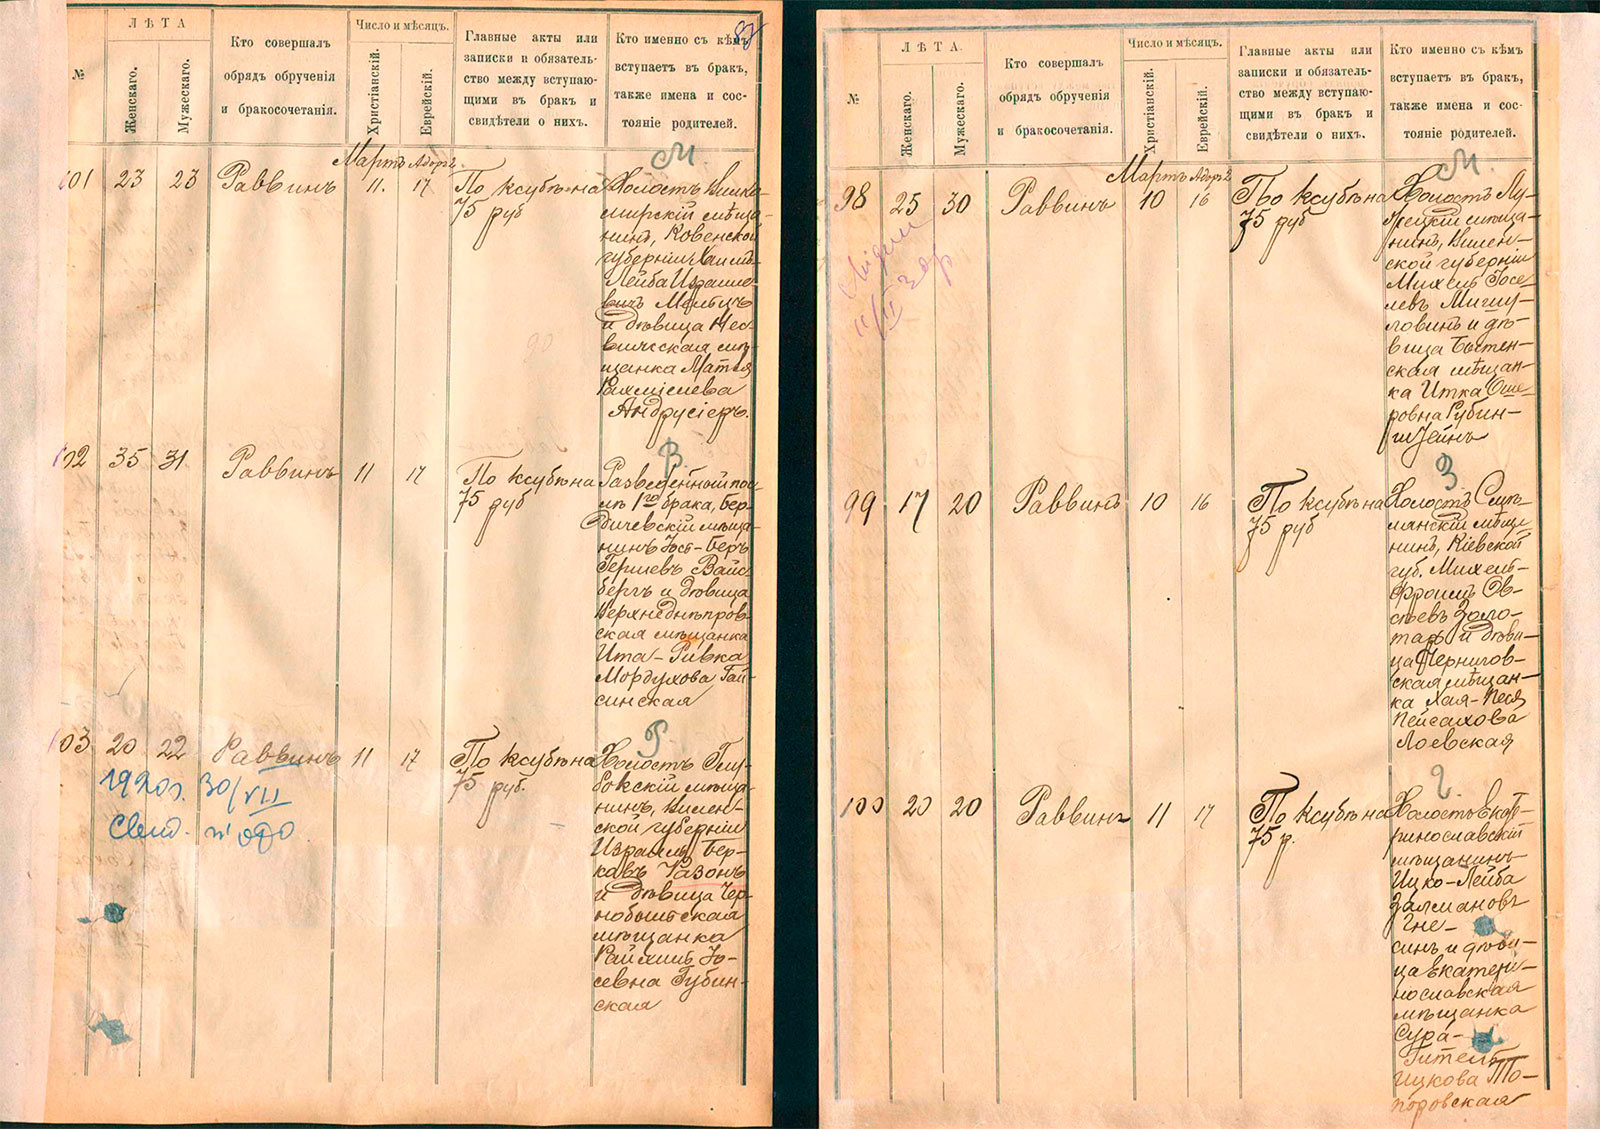 82
№
ЛѢТА
Женскаго.
Мужескаго.
Кто совершалъ
обрядъ обрученія
и бракосочетанія.
Число и мѣсяцъ.
Христіанскій.
Еврейскій.
Главные акты или
записки и обязатель-
ство между вступаю-
щими въ бракъ и
свидѣтели о нихъ.
Кто именно съ кѣмъ
вступаетъ въ бракъ,
также имена и сос-
тояніе родителей.
Мартъ Адоръ 2
М.
101 23 23 Раввинъ 11. 17
По ксубѣ на
75 руб
Холостъ Вилко-
мирскій мѣща-
нинъ, Ковенской
губерніи Хаимъ-
Лейба Израиле-
вичъ Мельцъ
и дѣвица Нес-
вижская мѣ-
щанка Матля
Рахміелева
Андрусіеръ.
В
102 35 31 Раввинъ 11 17
По ксубѣ на
75 руб
Разведенный пос-
лѣ 1го брака, Бер-
дичевскій мѣща-
нинъ Іось-Беръ
Гершевъ Вайс-
бергъ и дѣвица
Верхнеднѣпров-
ская мѣщанка
Ита-Ривка
Мордухова Гай-
синская
Р
103 20 22 Раввинъ 11 17
По ксубѣ на
75 руб.
Холостъ Глу-
бокскій мѣща-
нинъ, Вилен-
ской губерніи
Израиль Бер-
ковъ Разонъ
и дѣвица Чер-
нобыльская
мѣщанка
Райхиль Іо-
севна Губин-
ская
1920г. 30/VII
Свид. №
№
ЛѢТА.
Женскаго.
Мужескаго.
Кто совершалъ
обрядъ обрученія
и бракосочетанія.
Число и мѣсяцъ.
Христіанскій.
Еврейскій.
Главные акты или
записки и обязатель-
ство между вступаю-
щими въ бракъ и
свидѣтели о нихъ.
Кто именно съ кѣмъ
вступаетъ въ бракъ,
также имена и сос-
тояніе родителей.
Мартъ Адоръ 2
М.
98 25 30 Раввинъ 10 16
По ксубѣ на
75 руб
Холостъ Лу-
жецкій мѣща-
нинъ, Вилен-
ской губерніи
Михель Іосе-
левъ Мигу-
ловинъ и дѣ-
вица Бытен-
ская мѣщан-
ка Итка Оше-
ровна Рубин-
штейнъ
З
99 17 20 Раввинъ 10 16
По ксубѣ на
75 руб
Холостъ Смѣ-
лянскій мѣща-
нинъ, Кіевской
губ. Михель-
Фроимъ Ов-
сѣевъ Золо-
таръ и дѣви-
ца Чернигов-
ская мѣщан-
ка Хая-Песя
Пейсахова
Лоевская
Г.
100 20 20 Раввинъ 11 17
По ксубѣ на
75 р.
Холостъ Екате-
ринославскій
мѣщанинъ
Ицко-Лейба
Залмановъ
Гне-
синъ и дѣви-
ца Екатери-
нославская
мѣщанка
Сура-
Гитель
Ицкова То-
поровская